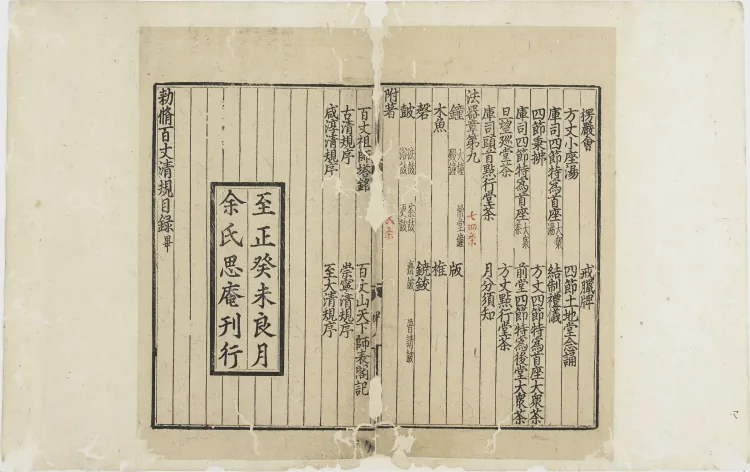 楞嚴會 戒臘牌
方丈小座湯 四節土地堂念誦
庫司四節特為首座大衆湯 結制禮儀
四節秉拂 方丈四節特為首座大衆茶
庫司四節特為首座大衆茶 前堂四節特為後堂大衆茶
旦望巡堂茶 方丈點行堂茶
庫司頭首點行堂茶 月分須知
法器章第九 七四条
鐘 大鐘 殿鐘 僧堂鐘 版
木魚 椎
磬 鐃鈸
鼓 法鼓 浴鼓 茶鼓 更鼓 齋鼓 普請鼓
附著
百丈祖師塔銘 百丈山天下師表閣記
古清規序 崇寧清規序
咸淳清規序 至大清規序
至正癸未良月
余氏思庵刊行
勅脩百丈清規目錄畢